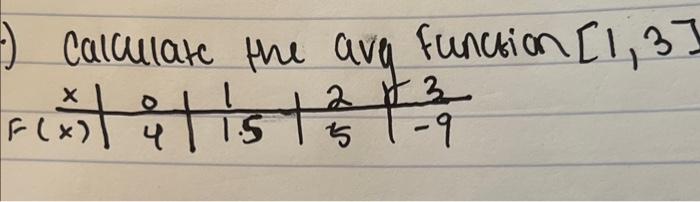 ) Calculate the avg function [1, 3]
x | 0 | 1 | 2 | 3
F(x) | 4 | 1.5 | 5 | -9